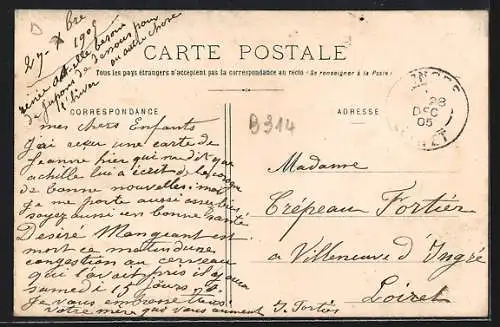 D
27 - Xbre
1905
Xénie a-t-elle besoin
de jupons de dessous pour
l'hiver
ou autre chose
CARTE POSTALE
Tous les pays étrangers n'acceptent pas la correspondance au recto - Se renseigner à la Poste.
CORRESPONDANCE
ADRESSE
B314
28
DEC
05
mes chers Enfants
J'ai reçu une carte de
Jeanne hier qui me dit que
achille lui a écrit
de bonne nouvelles; moi
je me porte aussi assez bien
soyez aussi en bonne santé
Désiré Mangeant est
mort ce matin d'une
congestion au cerveau
qui l'avait pris il y aura
samedi 15 jours
Je vous embrasse tous
votre mère qui vous aiment
F. Fortier
Madame
Crépeau Fortier
a Villeneuve d'Ingré
Loiret